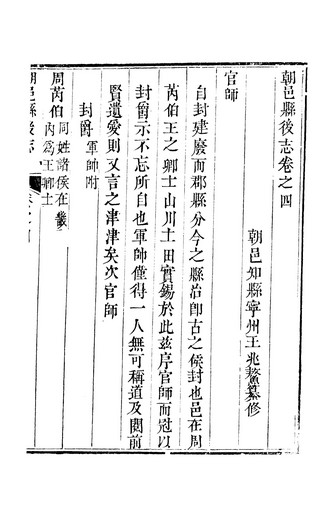 朝邑縣後志卷之四
朝邑知縣寧州王兆鰲纂修
官師
自封建廢而郡縣分今之縣治卽古之侯封也邑在周
芮伯王之卿士山川土田實錫於此兹序官師而冠以
封爵示不忘所自也軍師僅得一人無可稱道及閱前
賢遺愛則又言之津津矣次官師
封爵 軍帥附
周芮伯 同姓諸侯在畿
內爲王卿士
朝邑縣後志